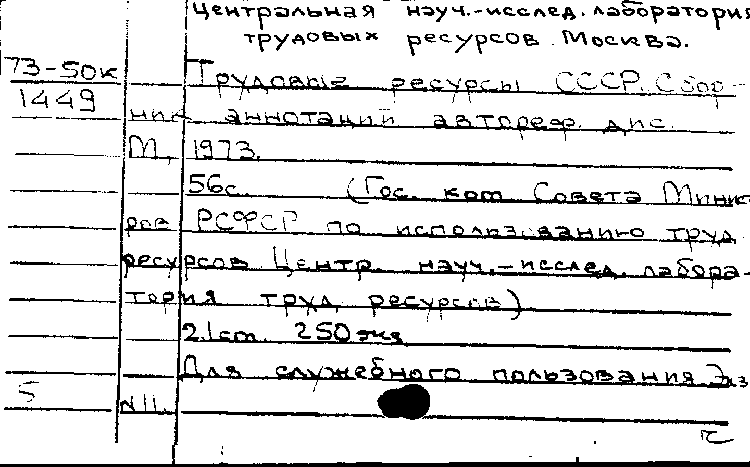 Центральная науч.-исслед. лаборатория
трудовых ресурсов. Москва.
73-50к
1449
Трудовые ресурсы СССР. Сбор-
ник аннотаций автореф. дис.
М., 1973.
56с. (Гос. ком. Совета Минист
ров РСФСР по использованию труд.
ресурсов. Центр. науч.-исслед. лабора-
тория труд. ресурсов)
2.1ст. 250экз
Для служебного пользования. Экз
5
N11.